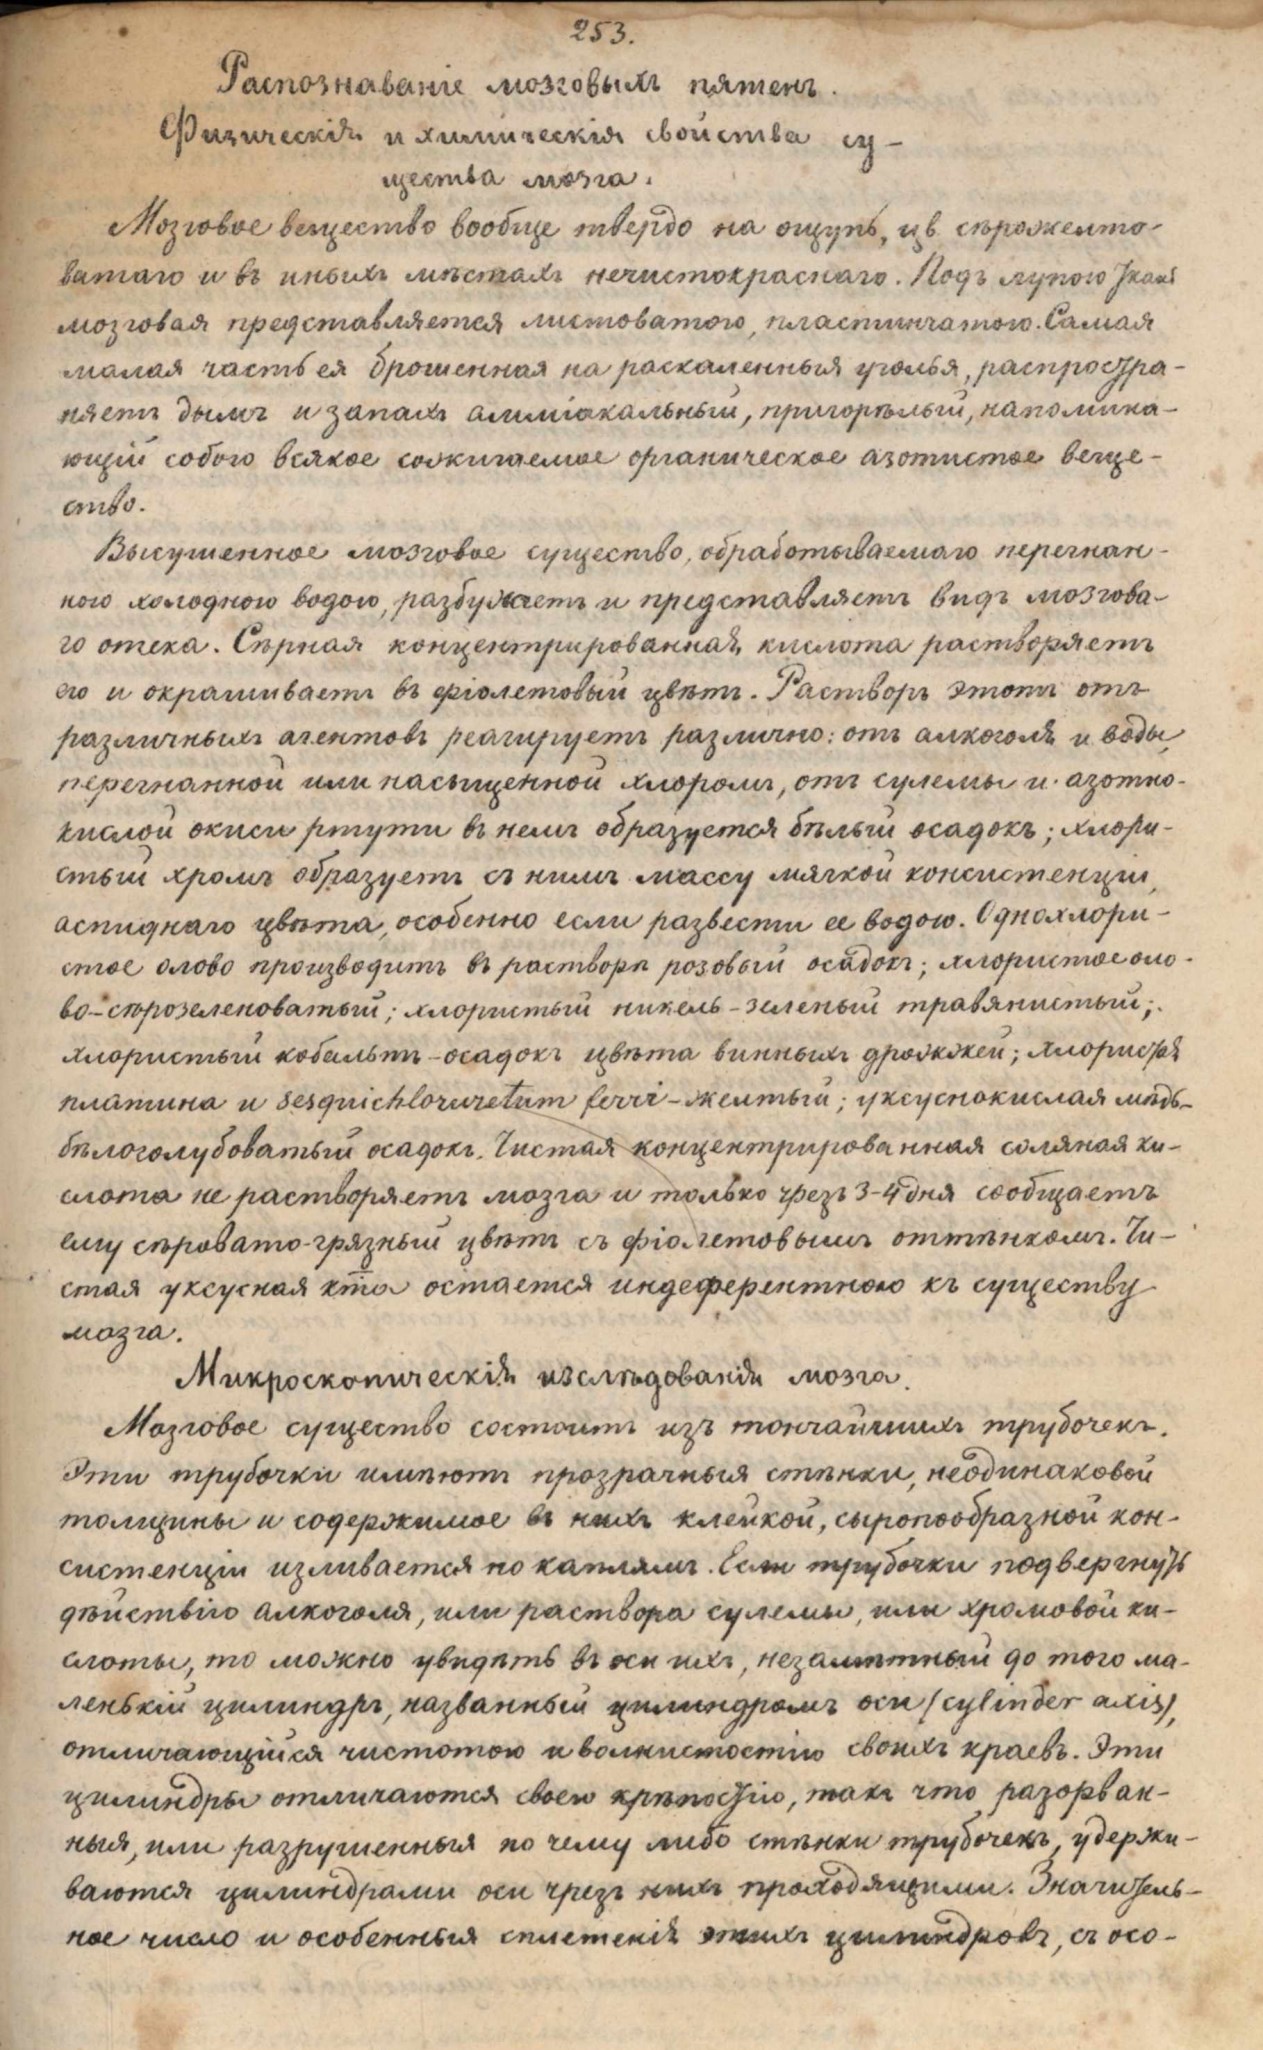 253.
Распознаваніе мозговыхъ пятенъ.
Физическія и химическія свойства су-
щества мозга.
Мозговое вещество вообще твердо на ощупь, цв. сѣрожелто-
ватаго и въ иныхъ мѣстахъ нечистокраснаго. Подъ лупою ткань
мозговая представляется листоватою, пластинчатою. Самая
малая часть ея брошенная на раскаленныя уголья, распростра-
няетъ дымъ и запахъ амміакальный, пригорѣлый, напомина-
ющій собою всякое сожигаемое органическое азотистое веще-
ство.
Высушенное мозговое существо, обработываемаго перегнан-
ною холодною водою, разбухаетъ и представляетъ видъ мозгова-
го отека. Сѣрная концентрированная кислота растворяетъ
его и окрашиваетъ въ фіолетовый цвѣтъ. Растворъ этотъ отъ
различныхъ агентовъ реагируетъ различно: отъ алкоголя и воды,
перегнанной или насыщенной хлоромъ, отъ сулемы и азотно-
кислой окиси ртути въ немъ образуется бѣлый осадокъ; хлори-
стый хромъ образуетъ съ нимъ массу мягкой консистенціи,
аспиднаго цвѣта, особенно если развести ее водою. Однохлори-
стое олово производитъ въ растворѣ розовый осадокъ; хлористое оло-
во-сѣрозеленоватый; хлористый никель-зеленый травянистый;
хлористый кобальтъ-осадокъ цвѣта винныхъ дрожжей; хлористая
платина и sesquichloruretum ferri-желтый; уксуснокислая мѣдь-
бѣлоголубоватый осадокъ. Чистая концентрированная соляная ки-
слота не растворяетъ мозга и только чрезъ 3-4 дня сообщаетъ
ему сѣровато-грязный цвѣтъ съ фіолетовымъ оттѣнкомъ. Чи-
стая уксусная кта остается индеферентною къ существу
мозга.
Микроскопическія изслѣдованія мозга.
Мозговое существо состоитъ изъ тончайшихъ трубочекъ.
Эти трубочки имѣютъ прозрачныя стѣнки, неодинаковой
толщины и содержимое въ нихъ клейкой, сыропообразной кон-
систенціи изливается по каплямъ. Если трубочки подвергнуть
дѣйствію алкоголя, или раствора сулемы, или хромовой ки-
слоты, то можно увидѣть въ оси ихъ, незамѣтный до того ма-
ленькій цилиндръ, названный цилиндромъ оси (cylinder axis),
отличающійся чистотою и волнистостію своихъ краевъ. Эти
цилиндры отличаются своею крѣпостію, такъ что разорван-
ныя, или разрушенныя по чему либо стѣнки трубочекъ, удержи-
ваются цилиндрами оси чрезъ нихъ проходящими. Значитель-
ное число и особенныя сплетенія этихъ цилиндровъ, съ осо-